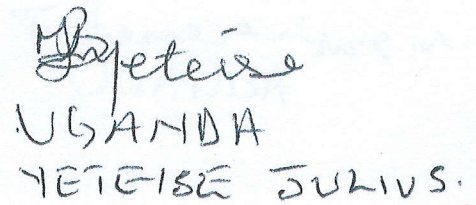 Byeteise
UGANDA
YETEISE JULIUS.